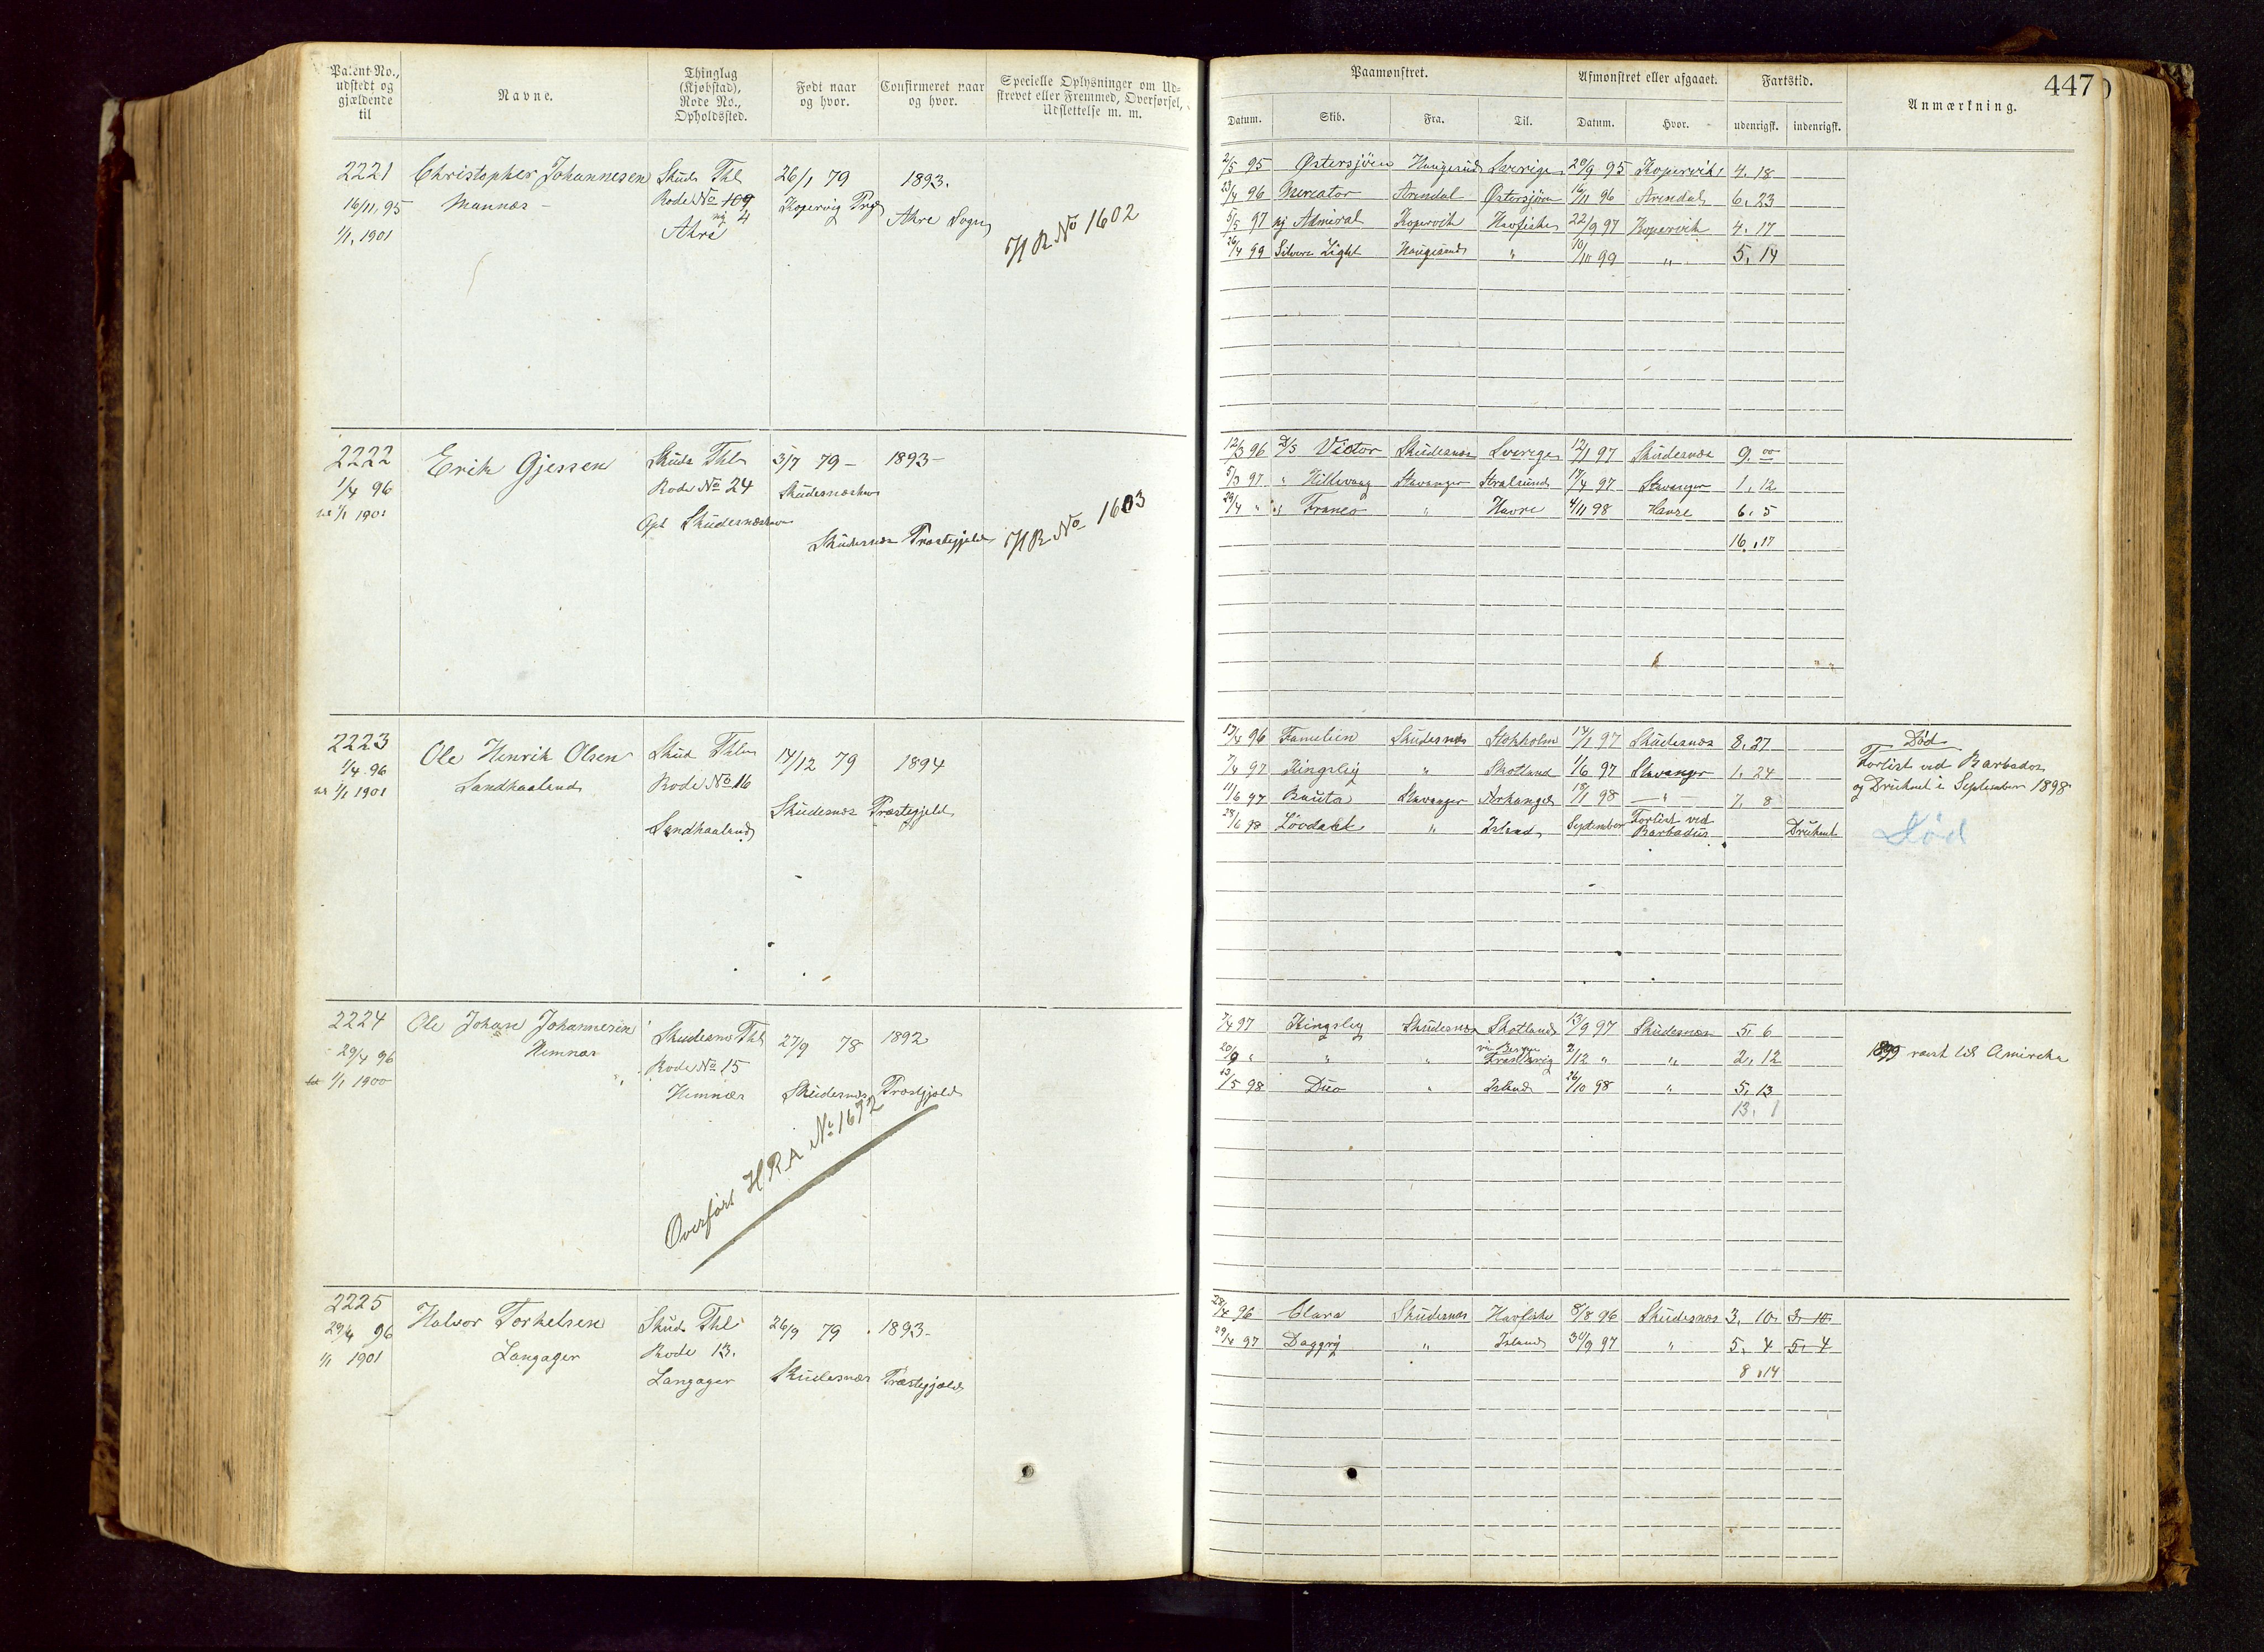 Patent-No., udstedt og gjældende til
Navne.
Thinglag (Kjøbstad), Rode No., Opholdssted.
Født naar og hvor.
Confirmeret naar og hvor.
Specielle Oplysninger om Udskrevet eller Fremmed, Overførsel, Udslettelse m. m.
Paamønstret.
Afmønstret eller afgaaet.
Fartstid.
Anmærkning.
447
Datum.
Skib.
Fra.
Til.
Datum.
Hvor.
udenrigsk.
indenrigsk.
2221
16/11, 95
1/1, 1901
Christopher Johannesen
Munnæs -
Skuds Thl
Rode No 109
4
Ahre
26/1 79
Kopervig Prgj
1893.
Ahre Sogn
HR No 1602
2/5 95 Østersjöen Haugesund Sverige 20/9 95 Kopervik 4. 18
23/4 96 Mercator Arendal Østersjöen 16/11 96 Arendal 6. 23
5/5 97 Admiral Kopervik Havfiske 22/9 97 Kopervik 4. 17
26/4 99 Silvere Light Haugesund " 10/11 99 " 5. 14
2222
1/4 96
1/1 1901
Erik Gjessen
Skuds Thl
Rode No 24
Opl Skudesnæshavn
3/7 79 -
Skudesnæshavn
1893 -
Skudesnæs Præstegjeld
HR No 1603
12/3 96 D/S Victor Skudesnæs Sverige 12/1 97 Skudesnæs 9. 00
5/3 97 " Hillevaag Stavanger Stralsund 17/4 97 Stavanger 1, 12
29/4 " " Franco " Havre 4/11 98 Havre 6. 5
16, 17
2223
1/4 96
1/1 1901
Ole Henrik Olsen
Sandhaaland
Skud Thl
Rode No 16
Sandhaaland
14/12 79
Skudesnæs Præstegjeld
1894
17/4 96 Familien Skudesnæs Stokholm 14/1 97 Skudesnæs 8. 27
7/4 97 Kingsley " Skotland 1/6 97 Stavanger 1, 24
11/6 97 Bauta Stavanger Arkangel 18/1 98 — " — 7, 8
28/6 98 Lövdahl " Island September Forlist ved Barbadus Druknet
Död
Forlist ved Barbados
og Druknet i September 1898
Död
2224
29/4 96
1/1 1900
Ole Johan Johannesen
Hemnæs
Skudesnæs Thl
Rode No 15
Hemnæs
27/9 78
Skudesnæs Præstgjeld
1892
Overført HRA No 1672
7/4 97 Kingsley Skudesnæs Skotland 13/9 97 Skudesnæs 5. 6
20/9 " " " via Bergen 2/12 " " 2, 12
13/5 98 Duo " Island 26/10 98 " 5, 13
13. 1
1899 reist til Amireka
2225
29/4 96
1/1 1901
Halvor Torkelsen
Langager
Skuds Thl
Rode 13.
Langager
26/9 79
Skudesnæs Præstegjeld
1893 -
28/4 96 Clara Skudesnæs Havfiske 8/8 96 Skudesnæs 3. 10. 3. 10
29/4 97 Daggry " Island 30/9 97 " 5. 4 5. 4
8, 14